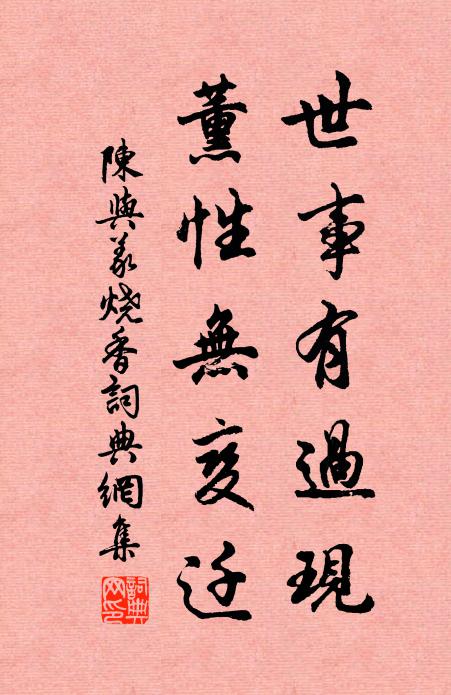 世事有過現
薰性無变迁
陳與義烧香詞典網集
詞典網印